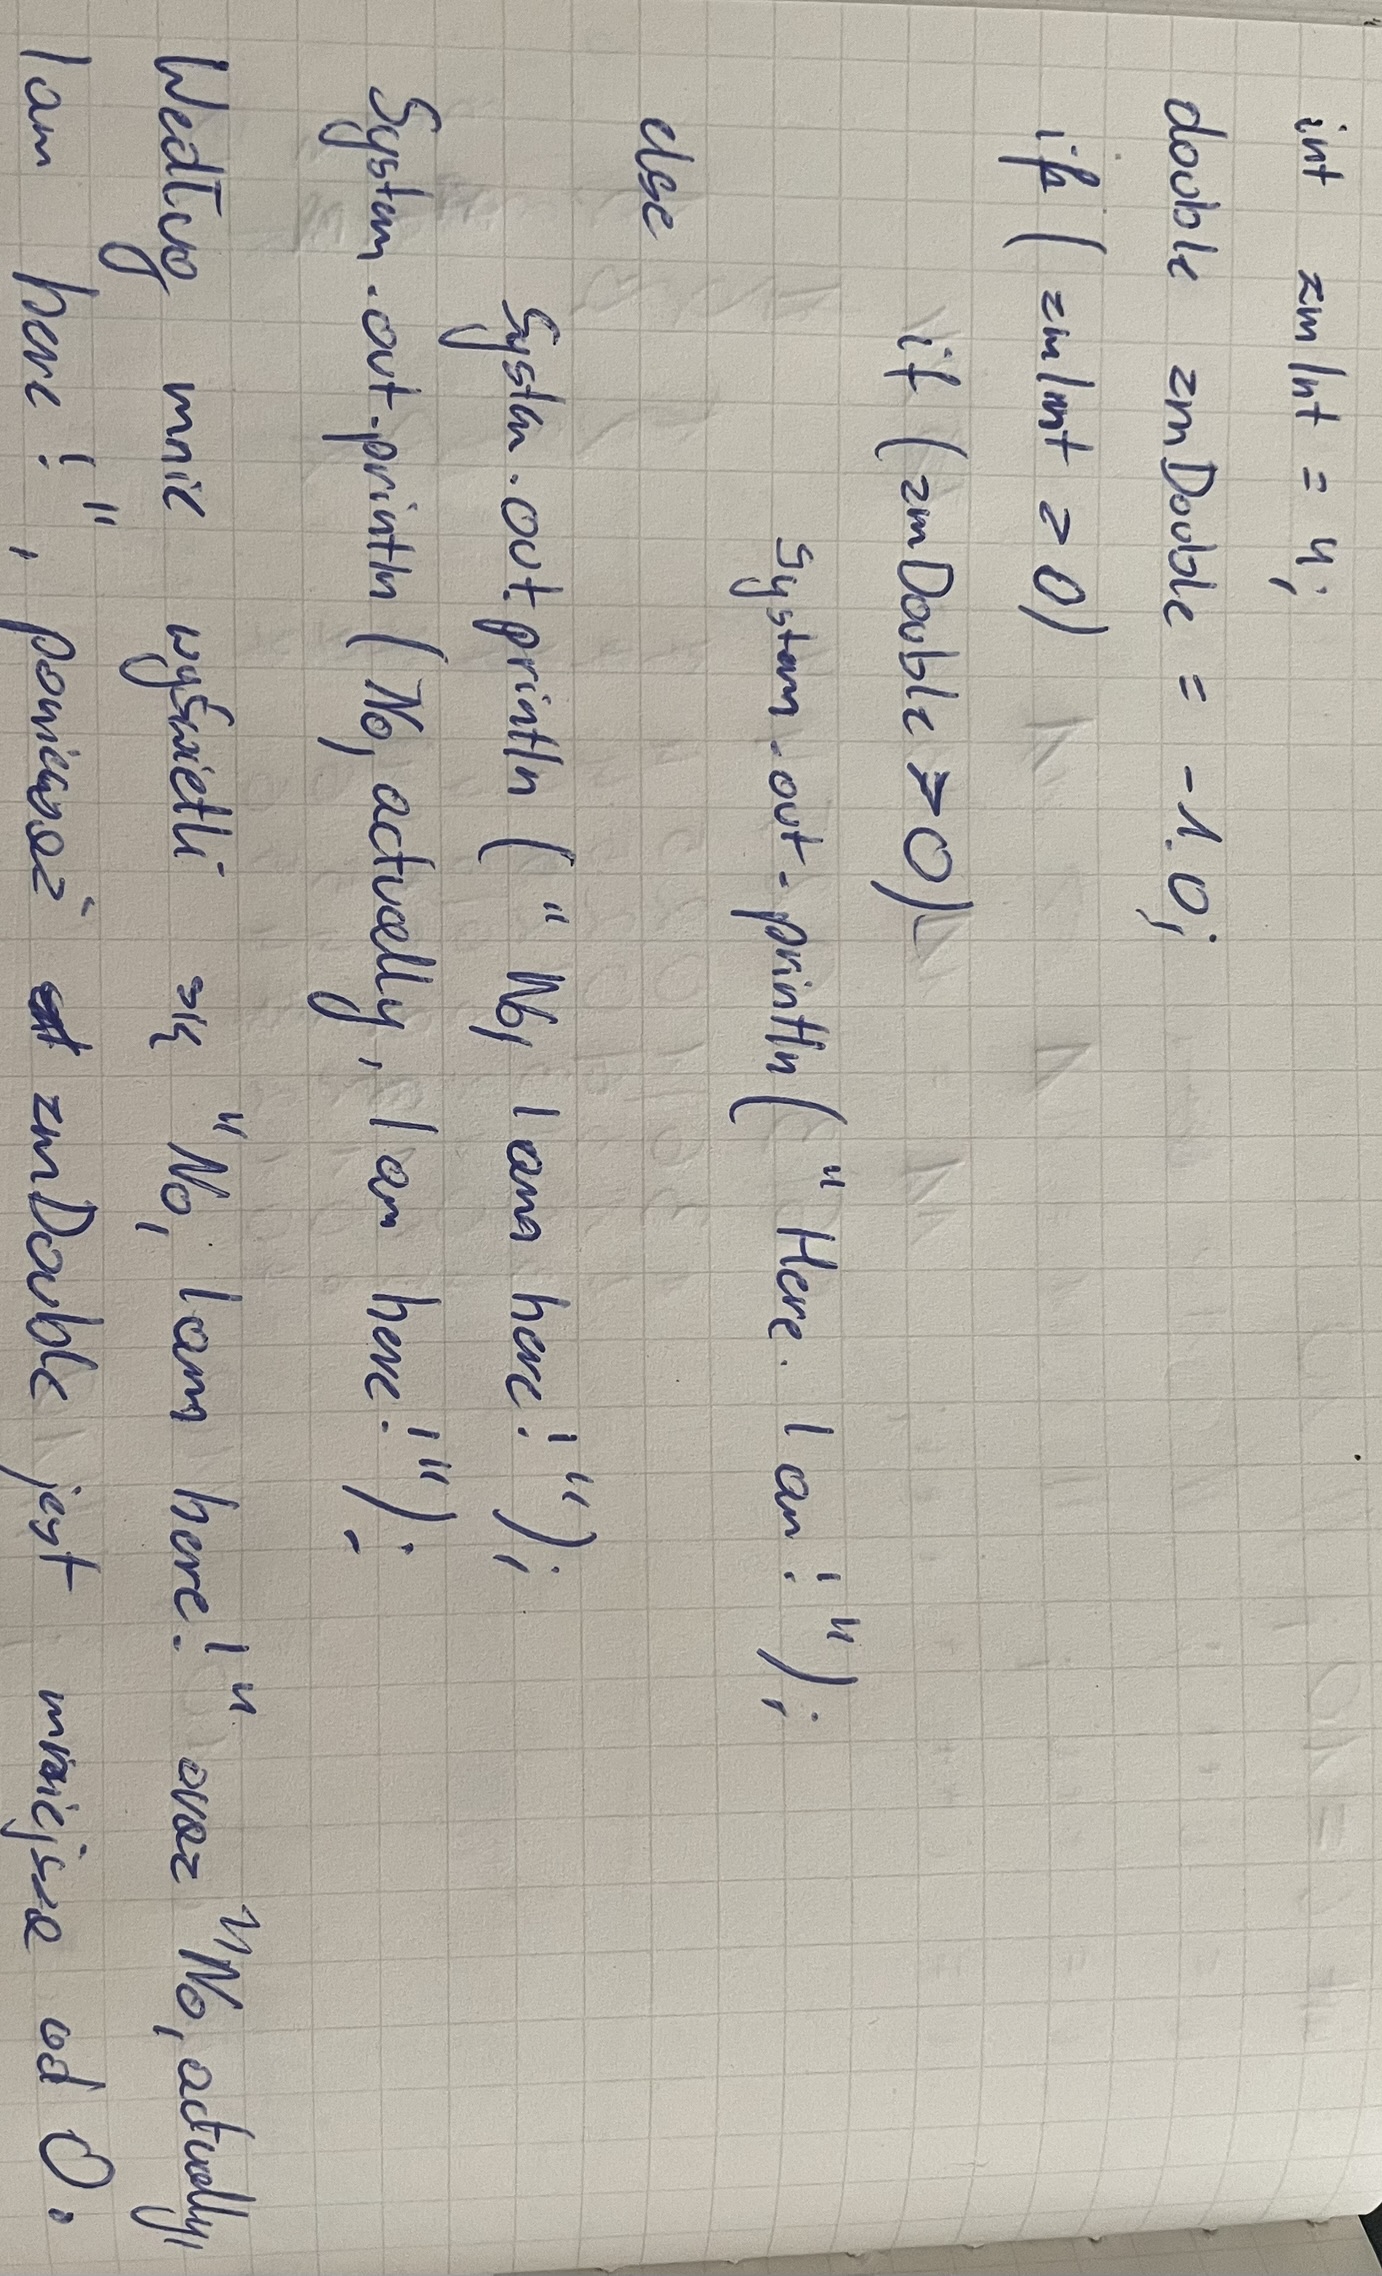 int zmInt = 4;
double zmDouble = -1.0;
if ( zmInt > 0)
if (zmDouble > 0)
System.out.println( " Here. I am! " );
else
System.out println ( " No, I am here! " );
System.out.println ( No, actually, I am here! " );
Według mnie wyświetli się "No, I am here!" oraz "No, actually,
I am here! ", ponieważ zmDouble jest mniejsze od 0.